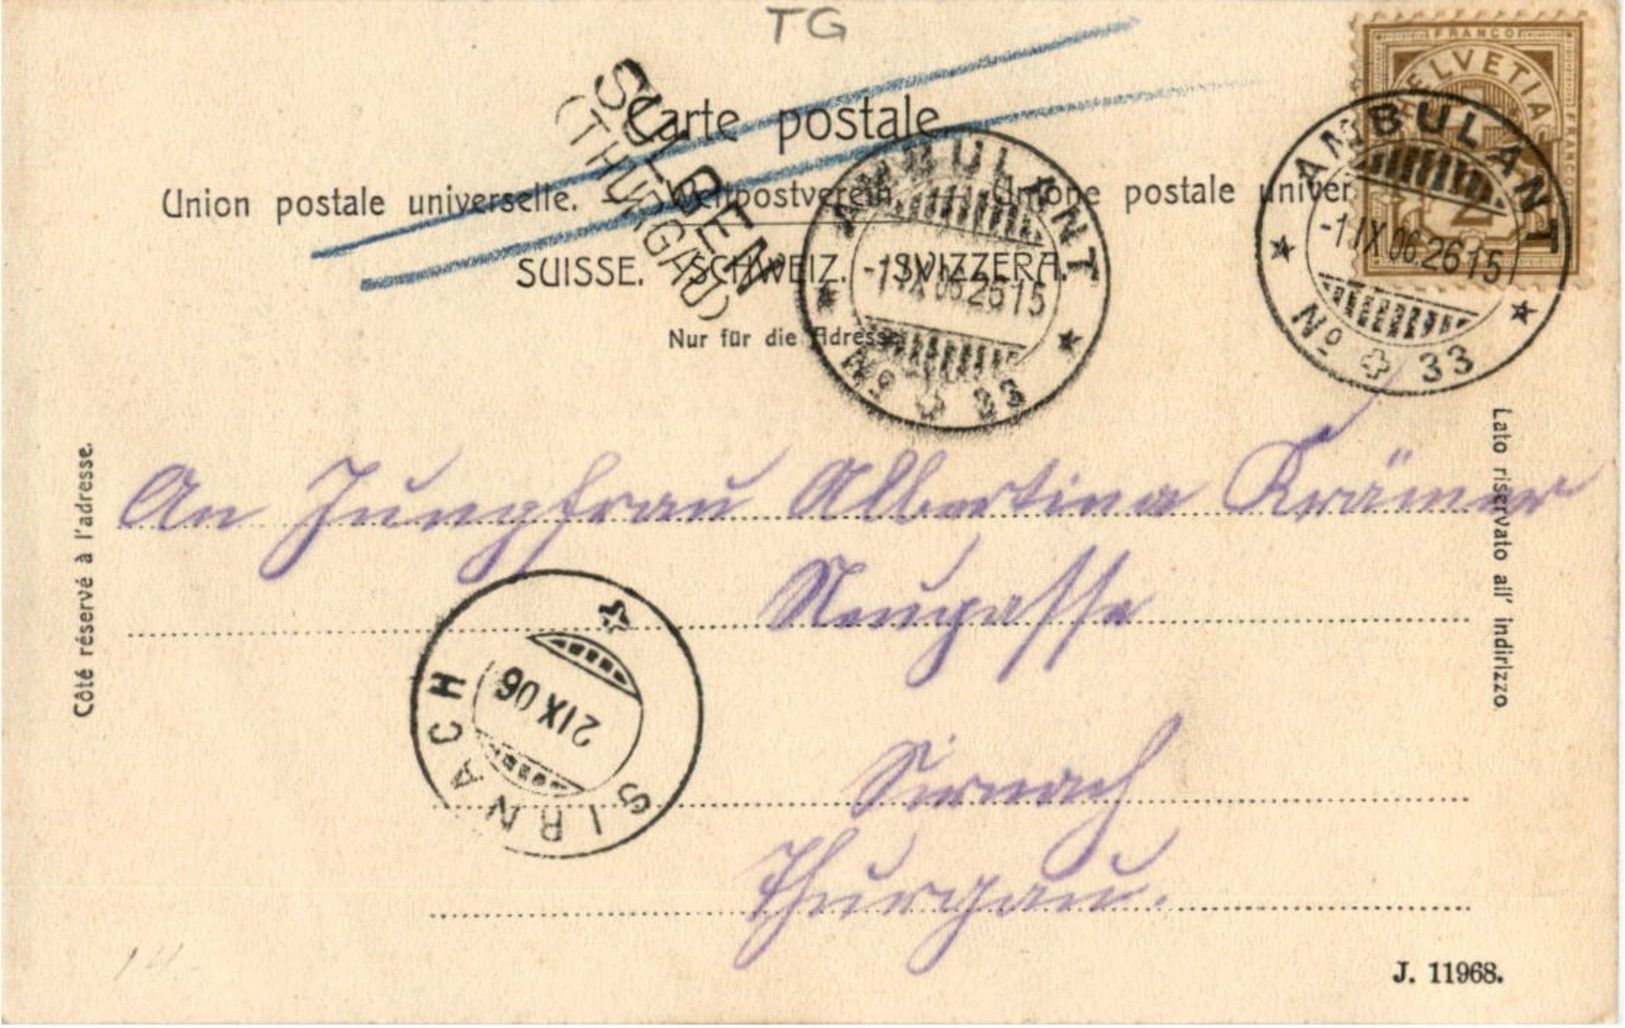 TG
FRANCO
HELVETIA
FRANCO
2
Carte postale.
SULGEN
(THURGAU)
Union postale universelle. Weltpostverein. Unione postale univer
SUISSE. SCHWEIZ. SVIZZERA.
Nur für die Adresse
AMBULANT
-1.IX.06.2615
No 33
AMBULANT
-1.IX.06.2615
No 33
Côté réservé à l'adresse.
Lato riservato all' indirizzo
An Jungfrau Albertina Krämer
Neugasse
SIRNACH
2 IX 06
Sirnach
Thurgau.
J. 11968.